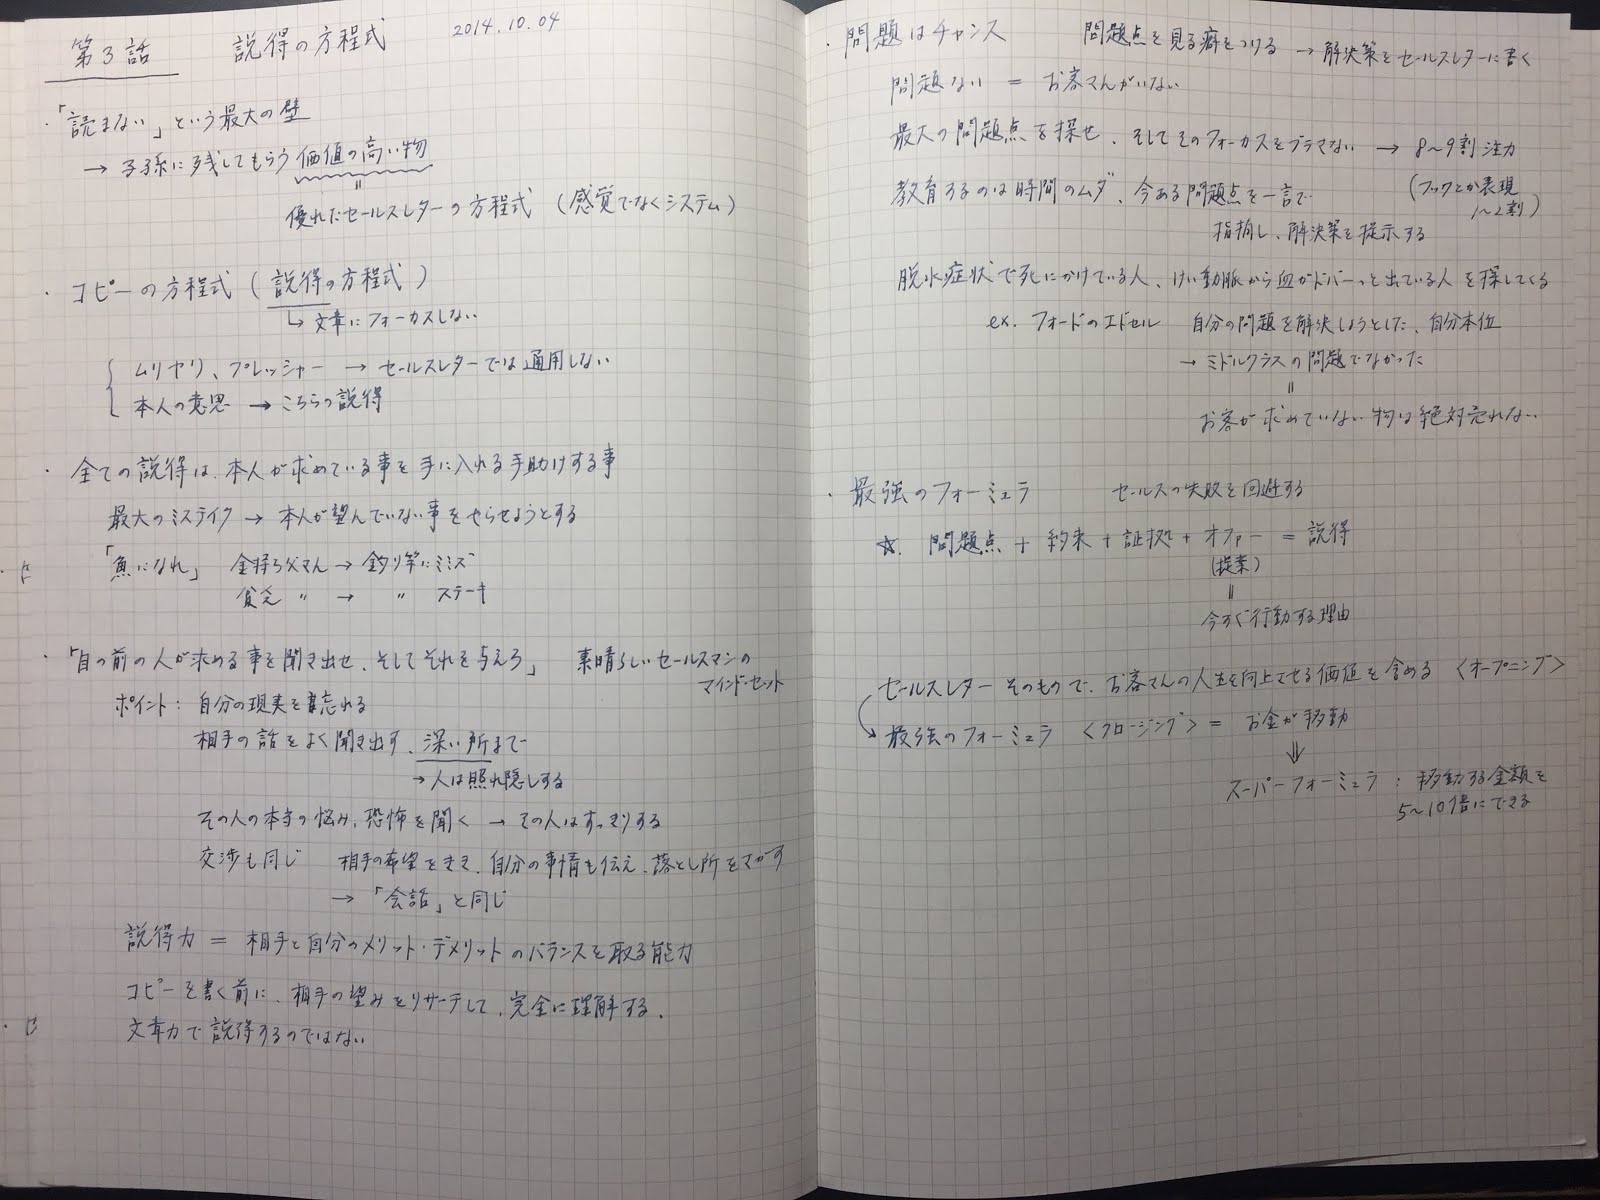 第3話　説得の方程式　2014.10.04
・「読まない」という最大の壁
→ 子子孫に残してもらう価値の高い物
＝
優れたセールスレターの方程式（感覚でなくシステム）
・コピーの方程式（説得の方程式）
↳ 文章にフォーカスしない
ムリヤリ、プレッシャー → セールスレターでは通用しない
本人の意思 → こちらの説得
・全ての説得は、本人が求めている事を手に入れる手助けする事
最大のミステイク → 本人が望んでいない事をやらせようとする
「魚になれ」　金持ち父さん → 釣り竿にミミズ
貧乏 〃 → 〃 ステーキ
・「目の前の人が求める事を聞き出せ、そしてそれを与えろ」　素晴らしいセールスマンの
マインド・セット
ポイント：自分の現実を忘れる
相手の話をよく聞き出す、深い所まで
→ 人は照れ隠しする
その人の本当の悩み、恐怖を聞く → その人はすっきりする
交渉も同じ　相手の希望をきき、自分の事情も伝え、落とし所をさがす
→ 「会話」と同じ
説得力 = 相手と自分のメリット・デメリットのバランスを取る能力
コピーを書く前に、相手の望みをリサーチして、完全に理解する。
文章力で説得するのではない
・問題はチャンス　問題点を見る癖をつける → 解決策をセールスレターに書く
問題ない = お客さんがいない
最大の問題点を探せ、そしてそのフォーカスをブラさない → 8〜9割注力
（フックとか表現
1〜2割）
教育するのは時間のムダ、今ある問題点を一言で
指摘し、解決策を提示する
脱水症状で死にかけている人、けい動脈から血がドバーっと出ている人を探してくる
ex. フォードのエドセル　自分の問題を解決しようとした、自分本位
→ ミドルクラスの問題でなかった
＝
お客が求めていない物は絶対売れない
・最強のフォーミュラ　セールスの失敗を回避する
☆. 問題点 + 約束 + 証拠 + オファー = 説得
（提案）
＝
今すぐ行動する理由
セールスレターそのもので、お客さんの人生を向上させる価値を含める〈オープニング〉
最強のフォーミュラ〈クロージング〉= お金が移動
⇓
スーパーフォーミュラ：移動する金額を
5〜10倍にできる